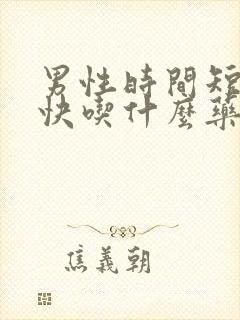 男性時間短
快喫什麼藥
焦義朝